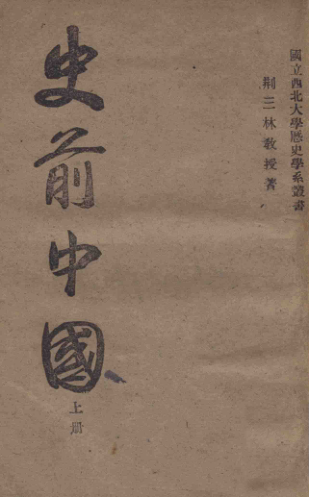 國立西北大學歷史學系叢書
荊三林教授著
史前中國
上册